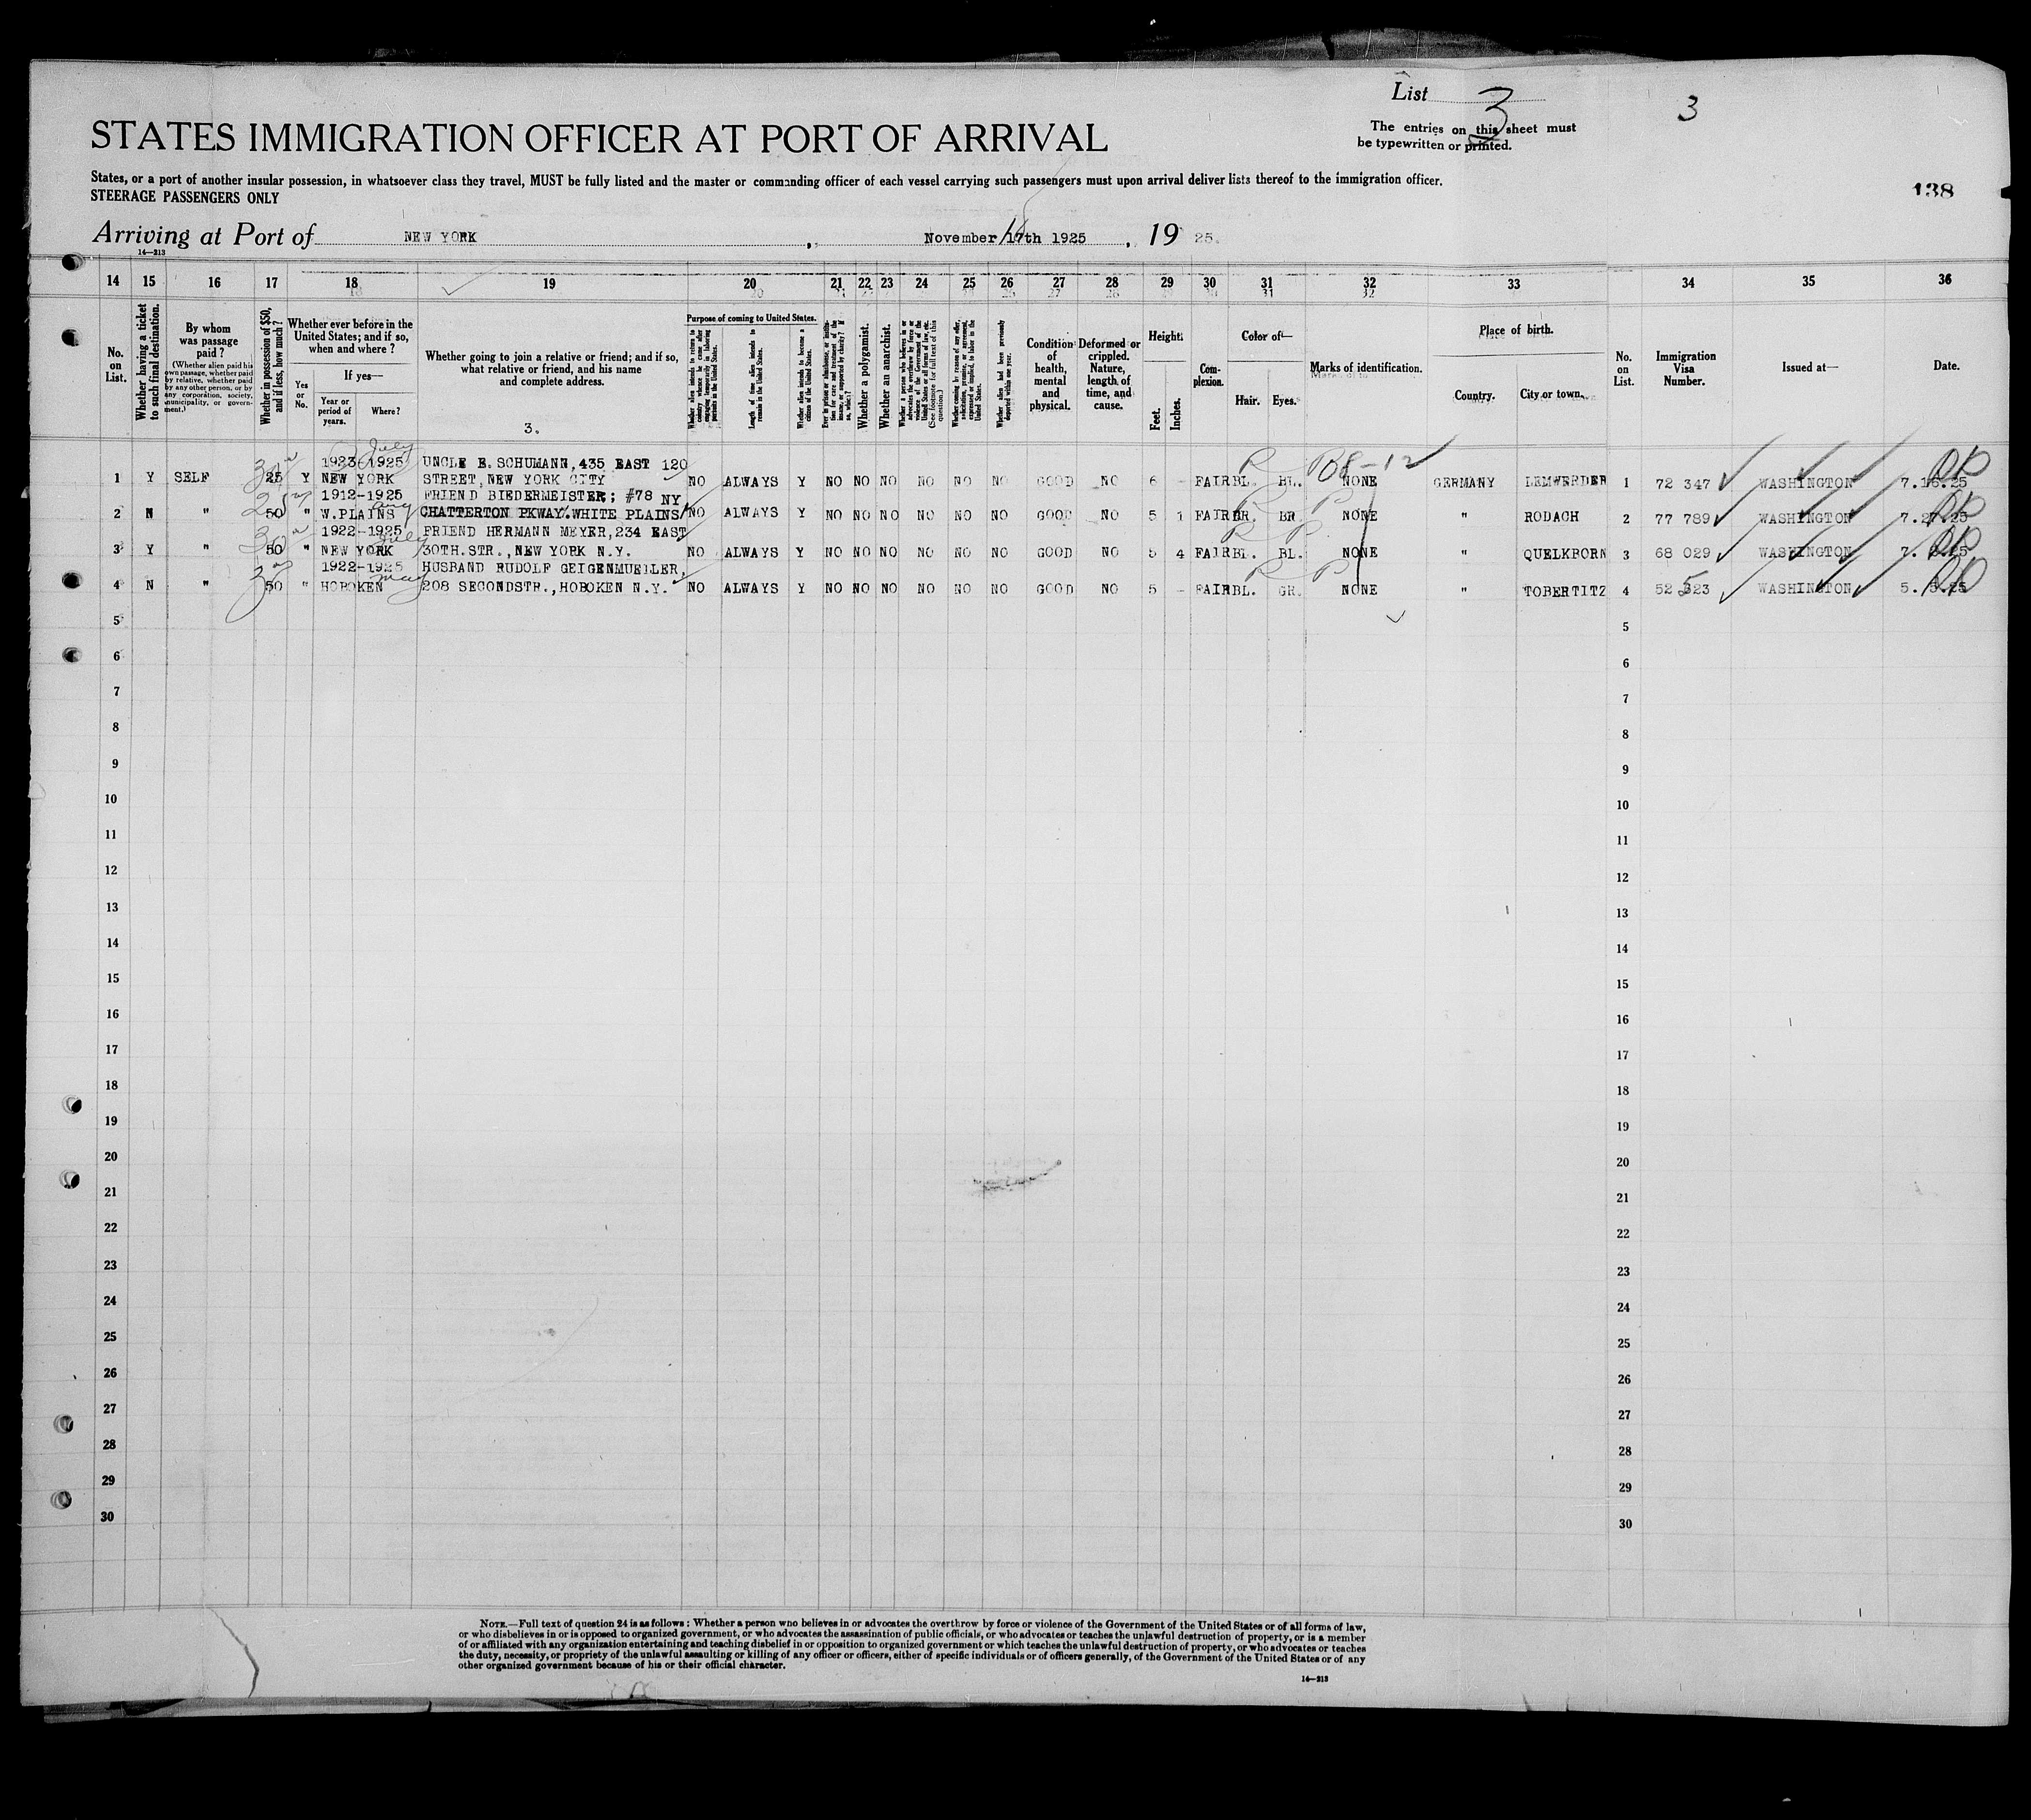 List 3
3
The entries on this sheet must
be typewritten or printed.
STATES IMMIGRATION OFFICER AT PORT OF ARRIVAL
States, or a port of another insular possession, in whatsoever class they travel, MUST be fully listed and the master or commanding officer of each vessel carrying such passengers must upon arrival deliver lists thereof to the immigration officer.
138
STEERAGE PASSENGERS ONLY
Arriving at Port of NEW YORK, November 17th 1925, 19 25.
14—213
14 15 16 17 18 19 20 21 22 23 24 25 26 27 28 29 30 31 32 33 34 35 36
No. on List.
Whether having a ticket to such final destination.
By whom was passage paid?
(Whether alien paid his own passage, whether paid by relative, whether paid by any other person, or by any corporation, society, municipality, or government.)
Whether in possession of $50, and if less, how much?
Whether ever before in the United States; and if so, when and where?
Yes or No.
If yes—
Year or period of years.
Where?
Whether going to join a relative or friend; and if so, what relative or friend, and his name and complete address.
3.
Purpose of coming to United States.
Whether alien intends to return to country whence he came after engaging temporarily in laboring pursuits in the United States.
Length of time alien intends to remain in the United States.
Whether alien intends to become a citizen of the United States.
Ever in prison or almshouse, or institution for care and treatment of the insane, or supported by charity? If so, which?
Whether a polygamist.
Whether an anarchist.
Whether a person who believes in or advocates the overthrow by force or violence of the Government of the United States or all forms of law, etc. (See footnote for full text of this question.)
Whether coming by reason of any offer, solicitation, promise, or agreement, expressed or implied, to labor in the United States.
Whether alien had been previously deported within one year.
Condition of health, mental and physical.
Deformed or crippled. Nature, length of time, and cause.
Height.
Feet. Inches.
Complexion.
Color of—
Hair. Eyes.
Marks of identification.
Place of birth.
Country. City or town.
No. on List.
Immigration Visa Number.
Issued at—
Date.
1923 1925 July UNCLE E. SCHUMANN, 435 EAST 120
1 Y SELF 25 Y NEW YORK STREET, NEW YORK CITY NO ALWAYS Y NO NO NO NO NO NO GOOD NO 6 - FAIR BL. BL. NONE GERMANY LEMWERDER 1 72 347 WASHINGTON 7.16.25
1912-1925 FRIEND BIEDERMEISTER; #78 NY
2 N " 50 " W.PLAINS CHATTERTON PKWAY. WHITE PLAINS/ NO ALWAYS Y NO NO NO NO NO NO GOOD NO 5 1 FAIR BR. BR NONE " RODACH 2 77 789 WASHINGTON 7.27.25
1922-1925 FRIEND HERMANN MEYER, 234 EAST
3 Y " 50 " NEW YORK July 30TH.STR., NEW YORK N.Y. NO ALWAYS Y NO NO NO NO NO NO GOOD NO 5 4 FAIR BL. BL. NONE " QUELKBORN 3 68 029 WASHINGTON
1922-1925 HUSBAND RUDOLF GEIGENMUELLER,
4 N " 50 " HOBOKEN May 208 SECONDSTR., HOBOKEN N.Y. NO ALWAYS Y NO NO NO NO NO NO GOOD NO 5 - FAIR BL. GR. NONE " TOBERTITZ 4 52 523 WASHINGTON 5. 5.25
5 5
6 6
7 7
8 8
9 9
10 10
11 11
12 12
13 13
14 14
15 15
16 16
17 17
18 18
19 19
20 20
21 21
22 22
23 23
24 24
25 25
26 26
27 27
28 28
29 29
30 30
NOTE.—Full text of question 24 is as follows: Whether a person who believes in or advocates the overthrow by force or violence of the Government of the United States or of all forms of law,
or who disbelieves in or is opposed to organized government, or who advocates the assassination of public officials, or who advocates or teaches the unlawful destruction of property, or is a member
of or affiliated with any organization entertaining and teaching disbelief in or opposition to organized government or which teaches the unlawful destruction of property, or who advocates or teaches
the duty, necessity, or propriety of the unlawful assaulting or killing of any officer or officers, either of specific individuals or of officers generally, of the Government of the United States or of any
other organized government because of his or their official character.
14—213